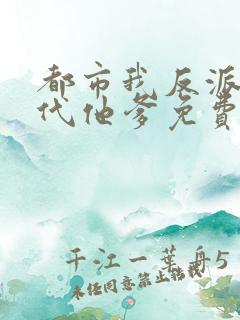 都市我反派
代他爹免費
千江一葉舟5
未经同意禁止转载